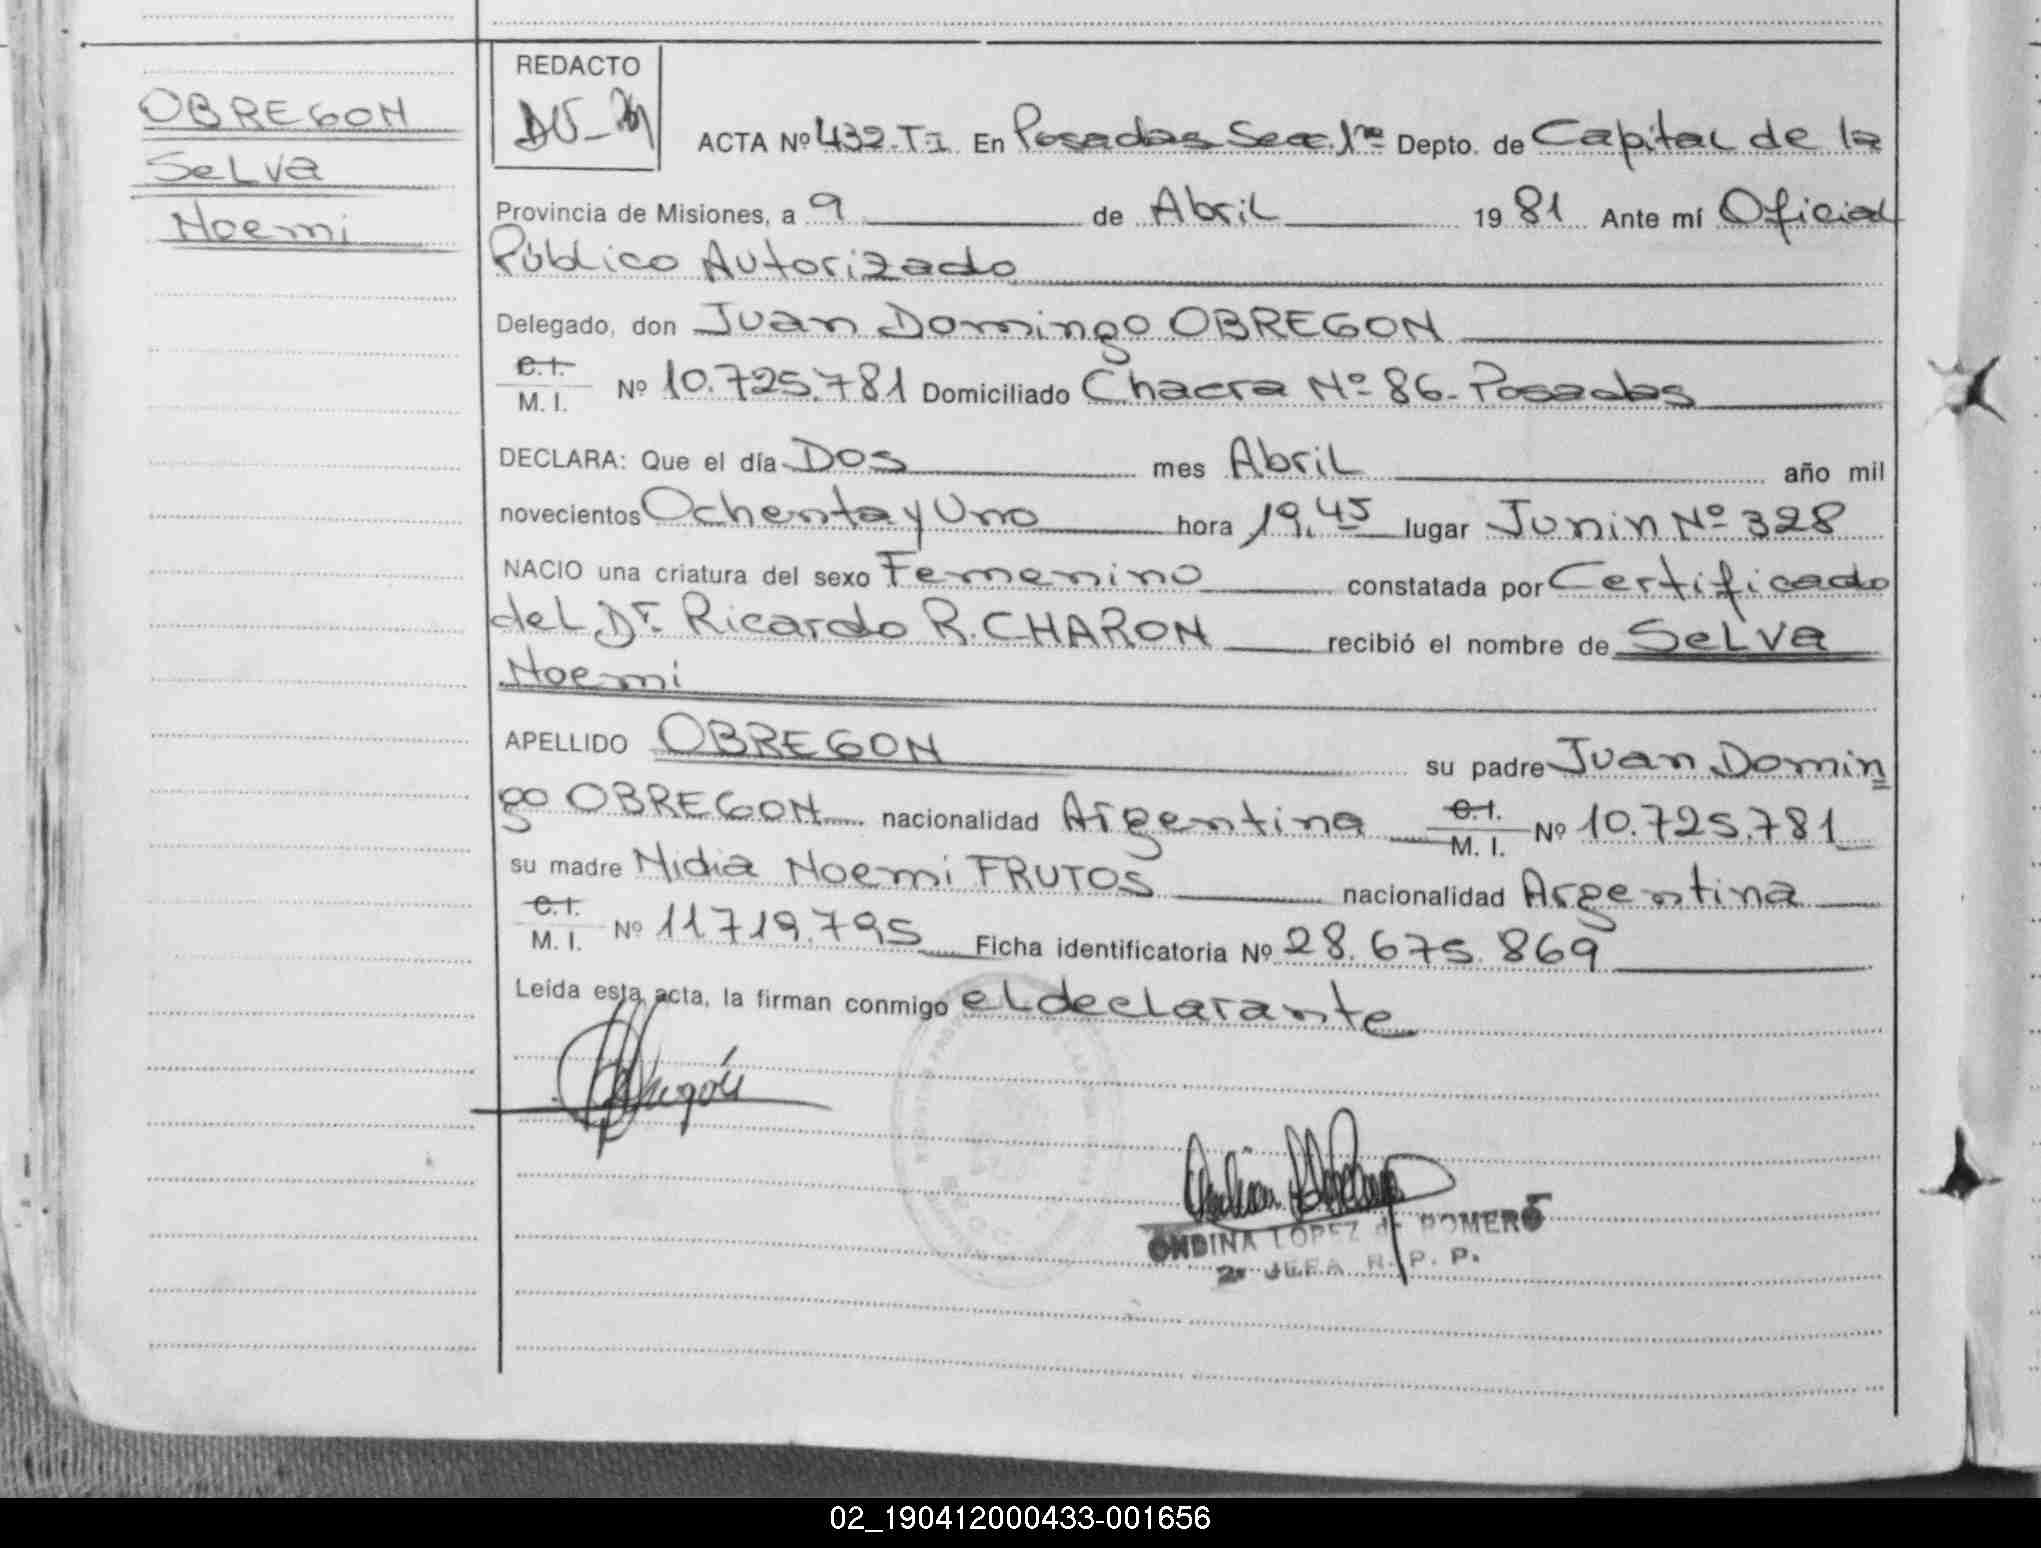 OBREGON
Selva
Noemi
REDACTO
ACTA Nº 432-T-I. En Posadas Secc. 1ra Depto. de Capital de la
Provincia de Misiones, a 9 de Abril 1981 Ante mí Oficial
Público Autorizado
Delegado, don Juan Domingo OBREGON
C.I. / M. I. Nº 10.725.781 Domiciliado Chacra Nº 86- Posadas
DECLARA: Que el día Dos mes Abril año mil
novecientos Ochenta y Uno hora 19.45 lugar Junin Nº 328
NACIO una criatura del sexo Femenino constatada por Certificado
del Dr. Ricardo R. CHARON recibió el nombre de Selva
Noemi
APELLIDO OBREGON su padre Juan Domin
go OBREGON nacionalidad Argentina C.I. / M. I. Nº 10.725.781
su madre Nidia Noemi FRUTOS nacionalidad Argentina
C.I. / M. I. Nº 11719.795 Ficha identificatoria Nº 28.675.869
Leída esta acta, la firman conmigo el declarante
ONDINA LOPEZ de ROMERO
2ª JEFA R. P. P.
02_190412000433-001656